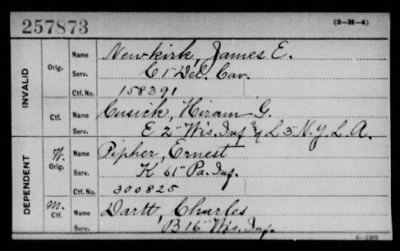 257873
(3-M-4)
INVALID
Orig.
Name
Newkirk, James E.
Serv.
C 1" Del. Cav.
Ctf. No.
158391
Ctf.
Name
Cusick, Hiram G.
Serv.
E 2" Wis. Inf & L 5" N.Y. L. A.
DEPENDENT
W.
Orig.
Name
Pipher, Ernest
Serv.
K 61" Pa. Inf.
Ctf. No.
300825
M.
Ctf.
Name
Dartt, Charles
Serv.
B 16" Wis. Inf.